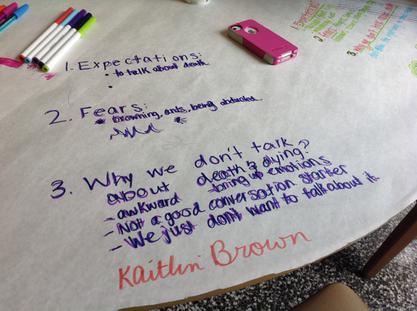 1. Expectations:
• to talk about death
•
2. Fears:
• Drowning, ants, being abducted
3. Why we don't talk
about death & dying?
- awkward - bring up emotions
- Not a good conversation starter
- We just don't want to talk about it
Kaitlin Brown